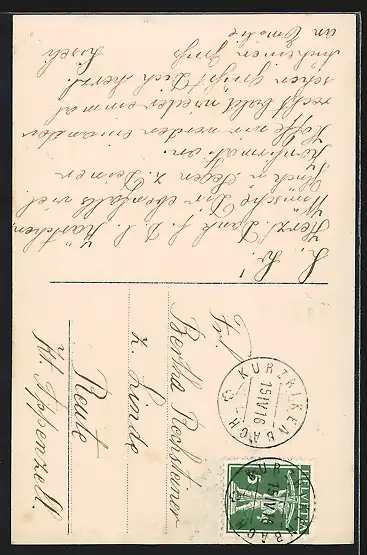 L. Br!
Herzl. Dank f. D. l. Kärtchen,
Wünsche Dir ebenfalls viel
Glück u. Segen z. Deiner
Konfirmation.
Hoffe wir werden einander
recht bald wieder einmal
sehen grüßt Dich herzl.
Lisch
an Emilie
Frl.
Bertha Rechsteiner
z. Linde
Reute
Kt. Appenzell.
KURZRICKENBACH
15 IV 16
HELVETIA
5
15 IV 16